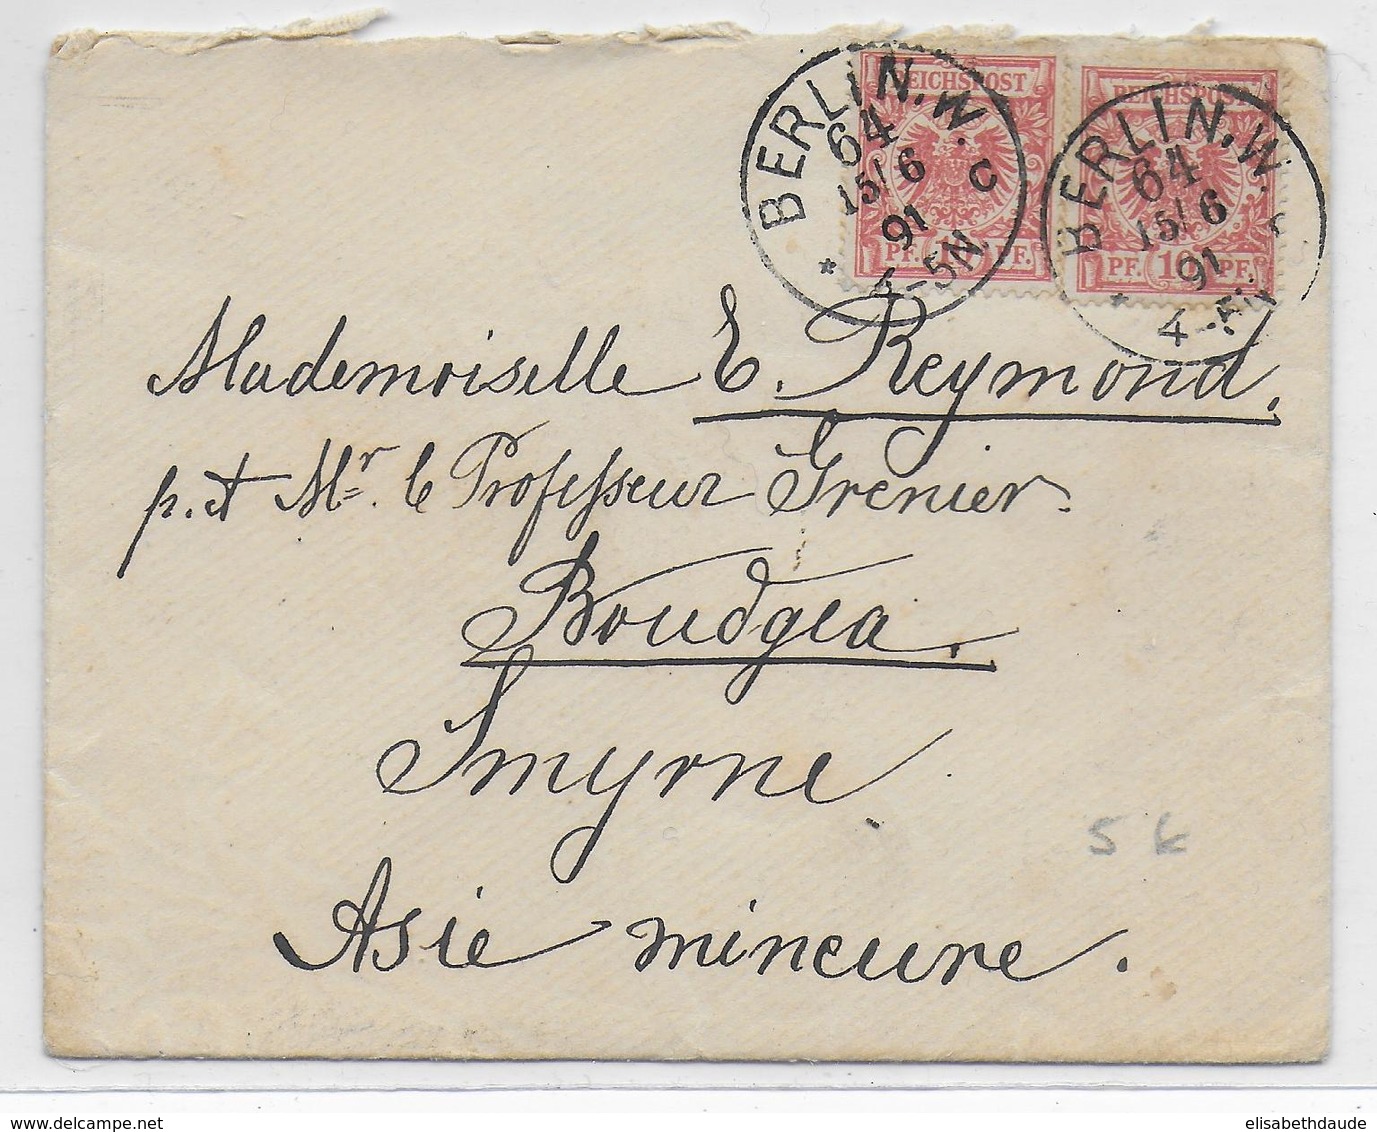 REICHSPOST
PF. 10 PF.
BERLIN, W.
64
15/6
91
4-5N.
* C
REICHSPOST
PF. 10 PF.
BERLIN, W.
64
15/6
91
4-5N
*
Mademoiselle E. Reymond.
p. ad Mr. le Professeur Grenier.
Boudgea.
Smyrne
Asie mineure.
5 k
www.delcampe.net
elisabethdaude